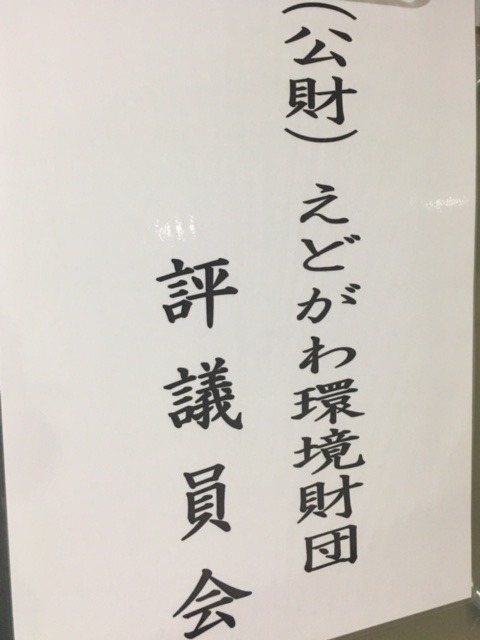 （公財）えどがわ環境財団
評議員会